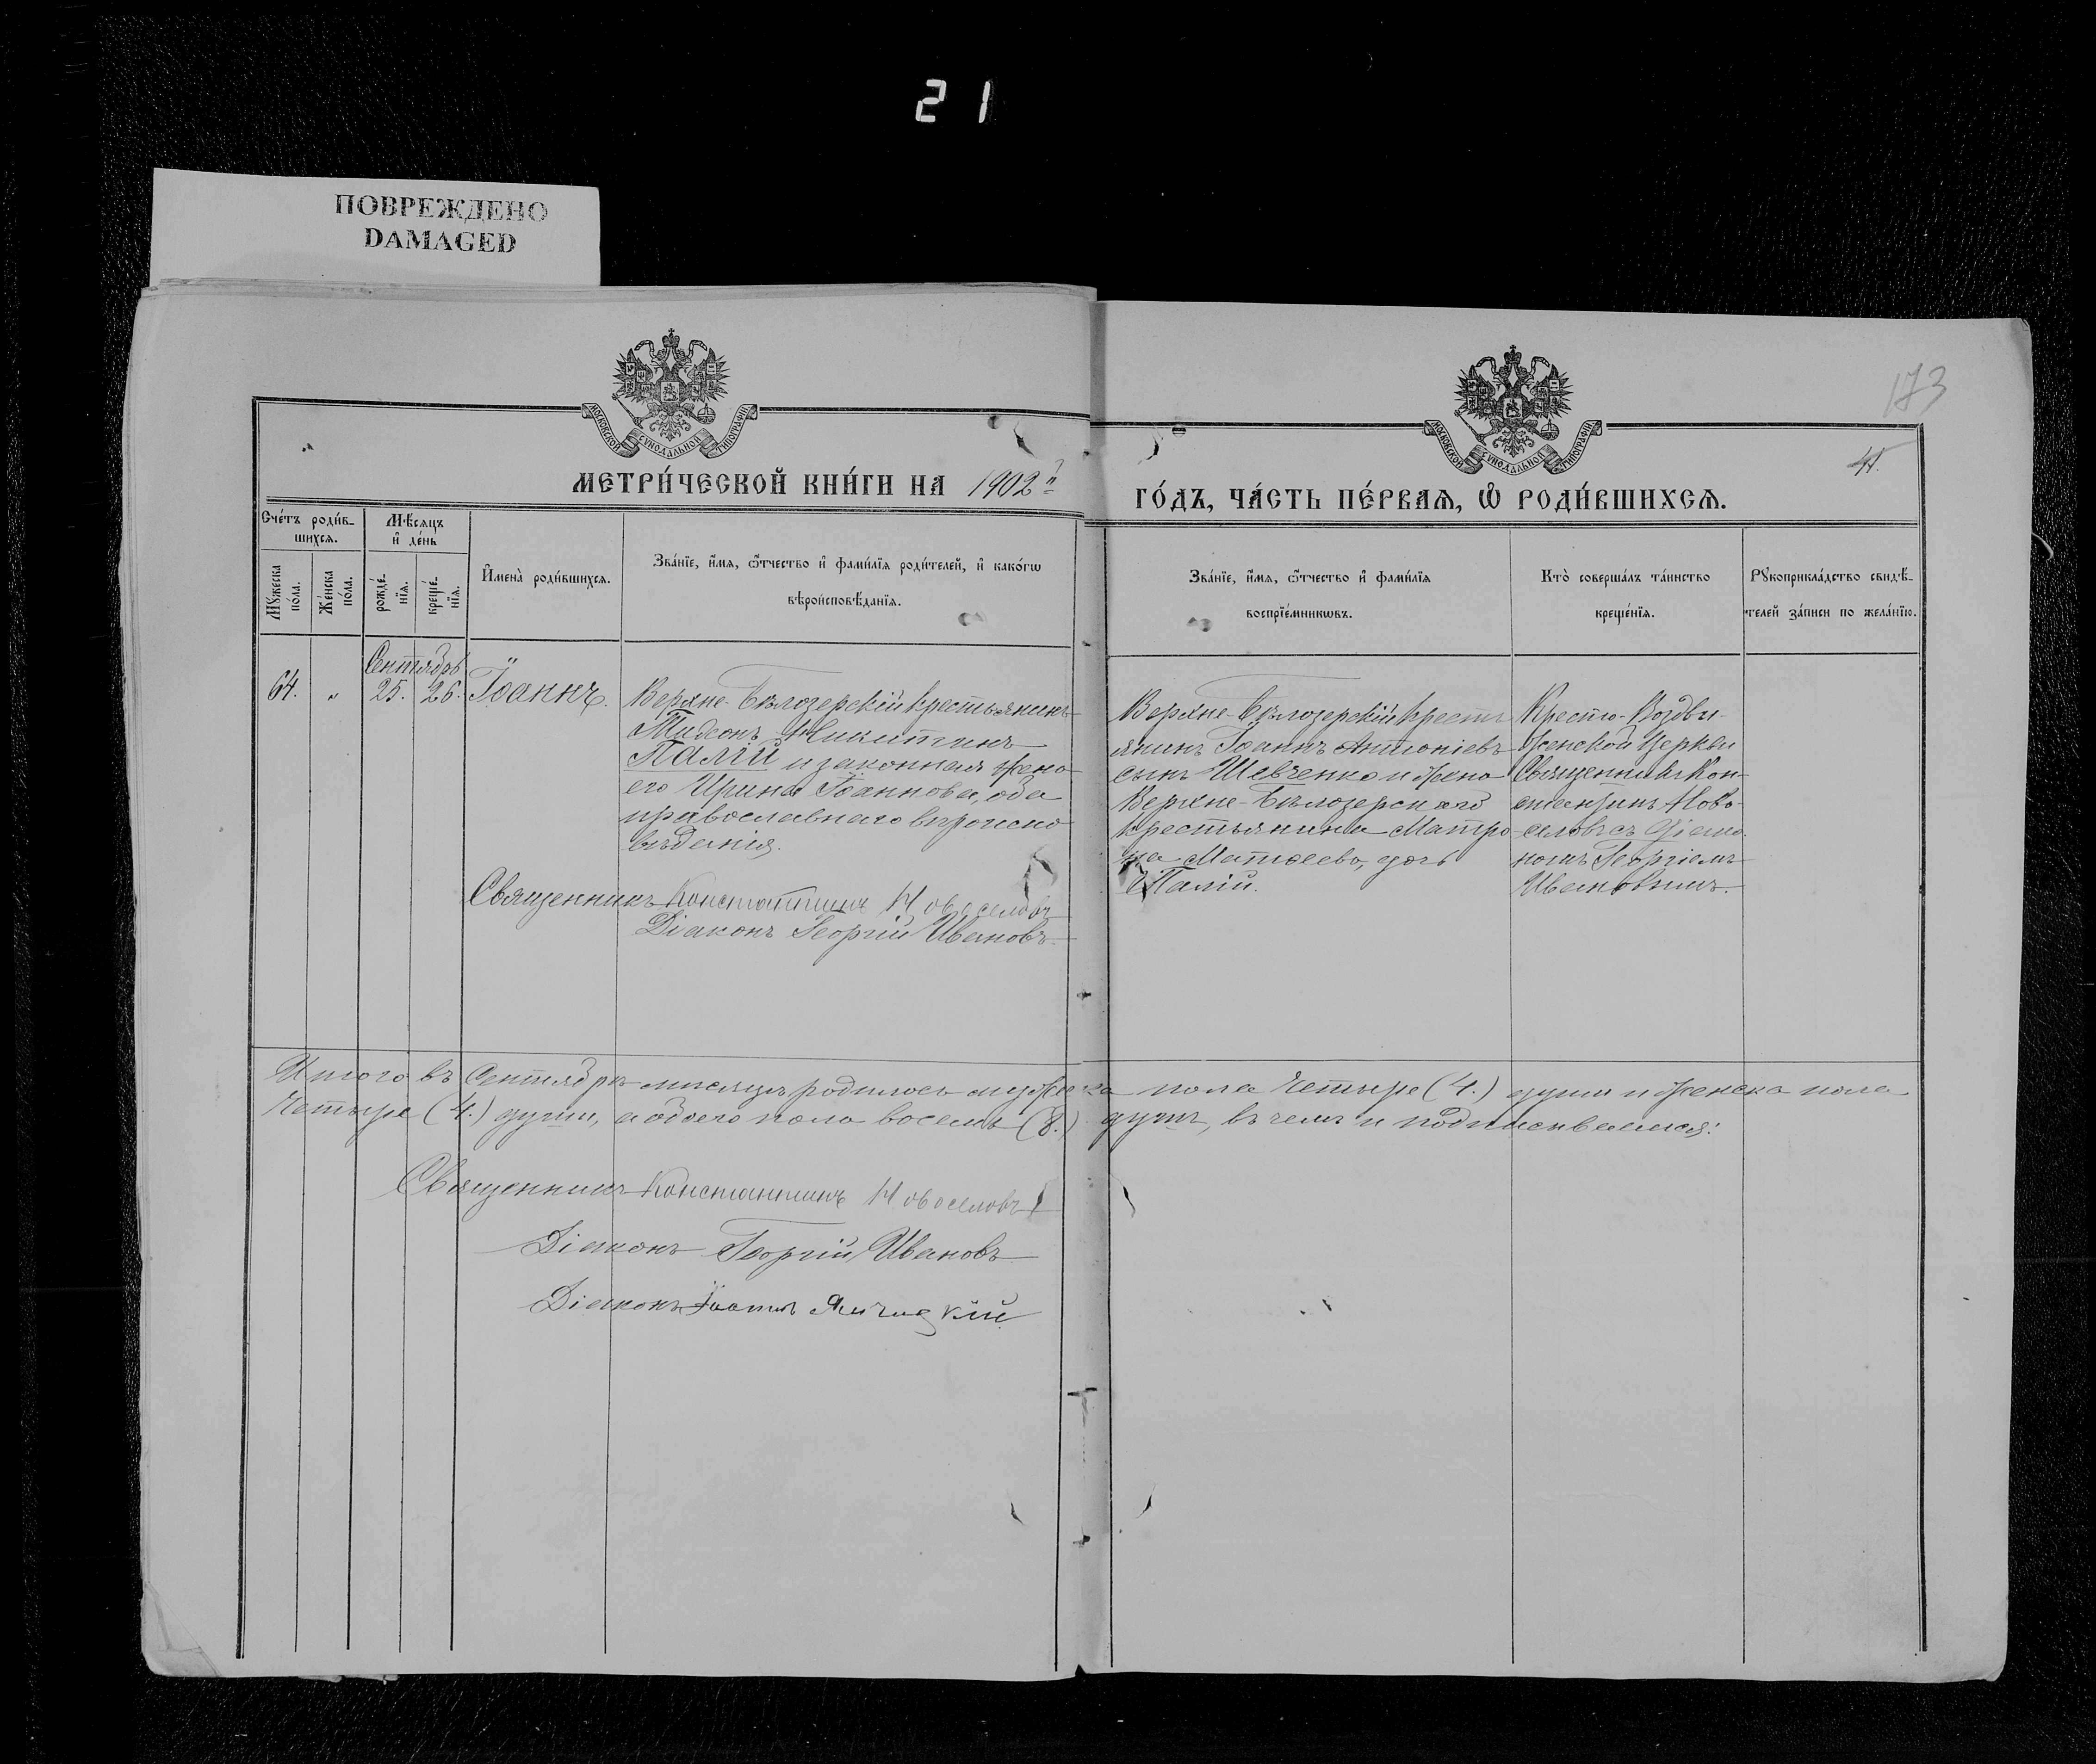 21
ПОВРЕЖДЕНО
DAMAGED
173
41.
МОСКОВСКОЙ СУНОДАЛЬНОЙ ТИПОГРАФІИ
МОСКОВСКОЙ СУНОДАЛЬНОЙ ТИПОГРАФІИ
МЕТРИ́ЧЕСКОЙ КНИ́ГИ НА 1902й
ГО́ДЪ, ЧА́СТЬ ПЕ́РВАѦ, Ѿ РОДИ́ВШИХСѦ.
Сче́тъ роди́в-
шихсѧ.
Мѣ́сѧцъ
и҆ де́нь
Мꙋ́жеска
по́ла.
Же́нска
по́ла.
рожде́-
нїѧ.
креще́-
нїѧ.
И҆мена̀ роди́вшихсѧ.
Зва́нїе, и҆́мѧ, ѻ҆́тчество и҆ фами́лїѧ роди́телей, и҆ како́гѡ
вѣроисповѣ́данїѧ.
Зва́нїе, и҆́мѧ, ѻ҆́тчество и҆ фами́лїѧ
воспрїе́мникѡвъ.
Кто̀ соверша́лъ та́инство
креще́нїѧ.
Рꙋкоприкла́дство свидѣ́-
телей за́писи по жела́нїю.
Сентябрь
64. „ 25. 26. Іоаннъ.
Верхне-Бѣлозерскій крестьянинъ
Гидеонъ Никитинъ
Палій и законная жена
его Ирина Іоаннова, оба
православнаго вѣроиспо
вѣданія.
Верхне-Бѣлозерскій кресть
янинъ Іоаннъ Антоніевъ
сынъ Шевченко и жена
Верхне-Бѣлозерскаго
крестьянина Матро
на Матѳеева, дочь
Палій.
Кресто-Воздви-
женской Церкви
Священникъ Кон-
стантинъ Ново-
селовъ съ Діако
номъ Георгіемъ
Ивановымъ.
Священникъ Константинъ Новоселовъ
Діаконъ Георгій Ивановъ
Итого въ Сентябрѣ мѣсяцѣ родилось мужеска пола четыре (4.) души и женска пола
четыре (4.) души, а обоего пола восемь (8.) душъ, въ чемъ и подписываемся:
Священникъ Константинъ Новоселовъ
Діаконъ Георгій Ивановъ
Діаконъ